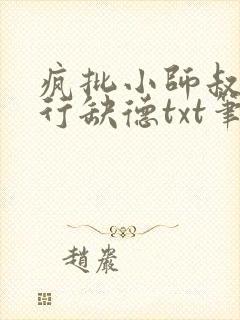 疯批小師叔
行缺德txt筆
趙巖